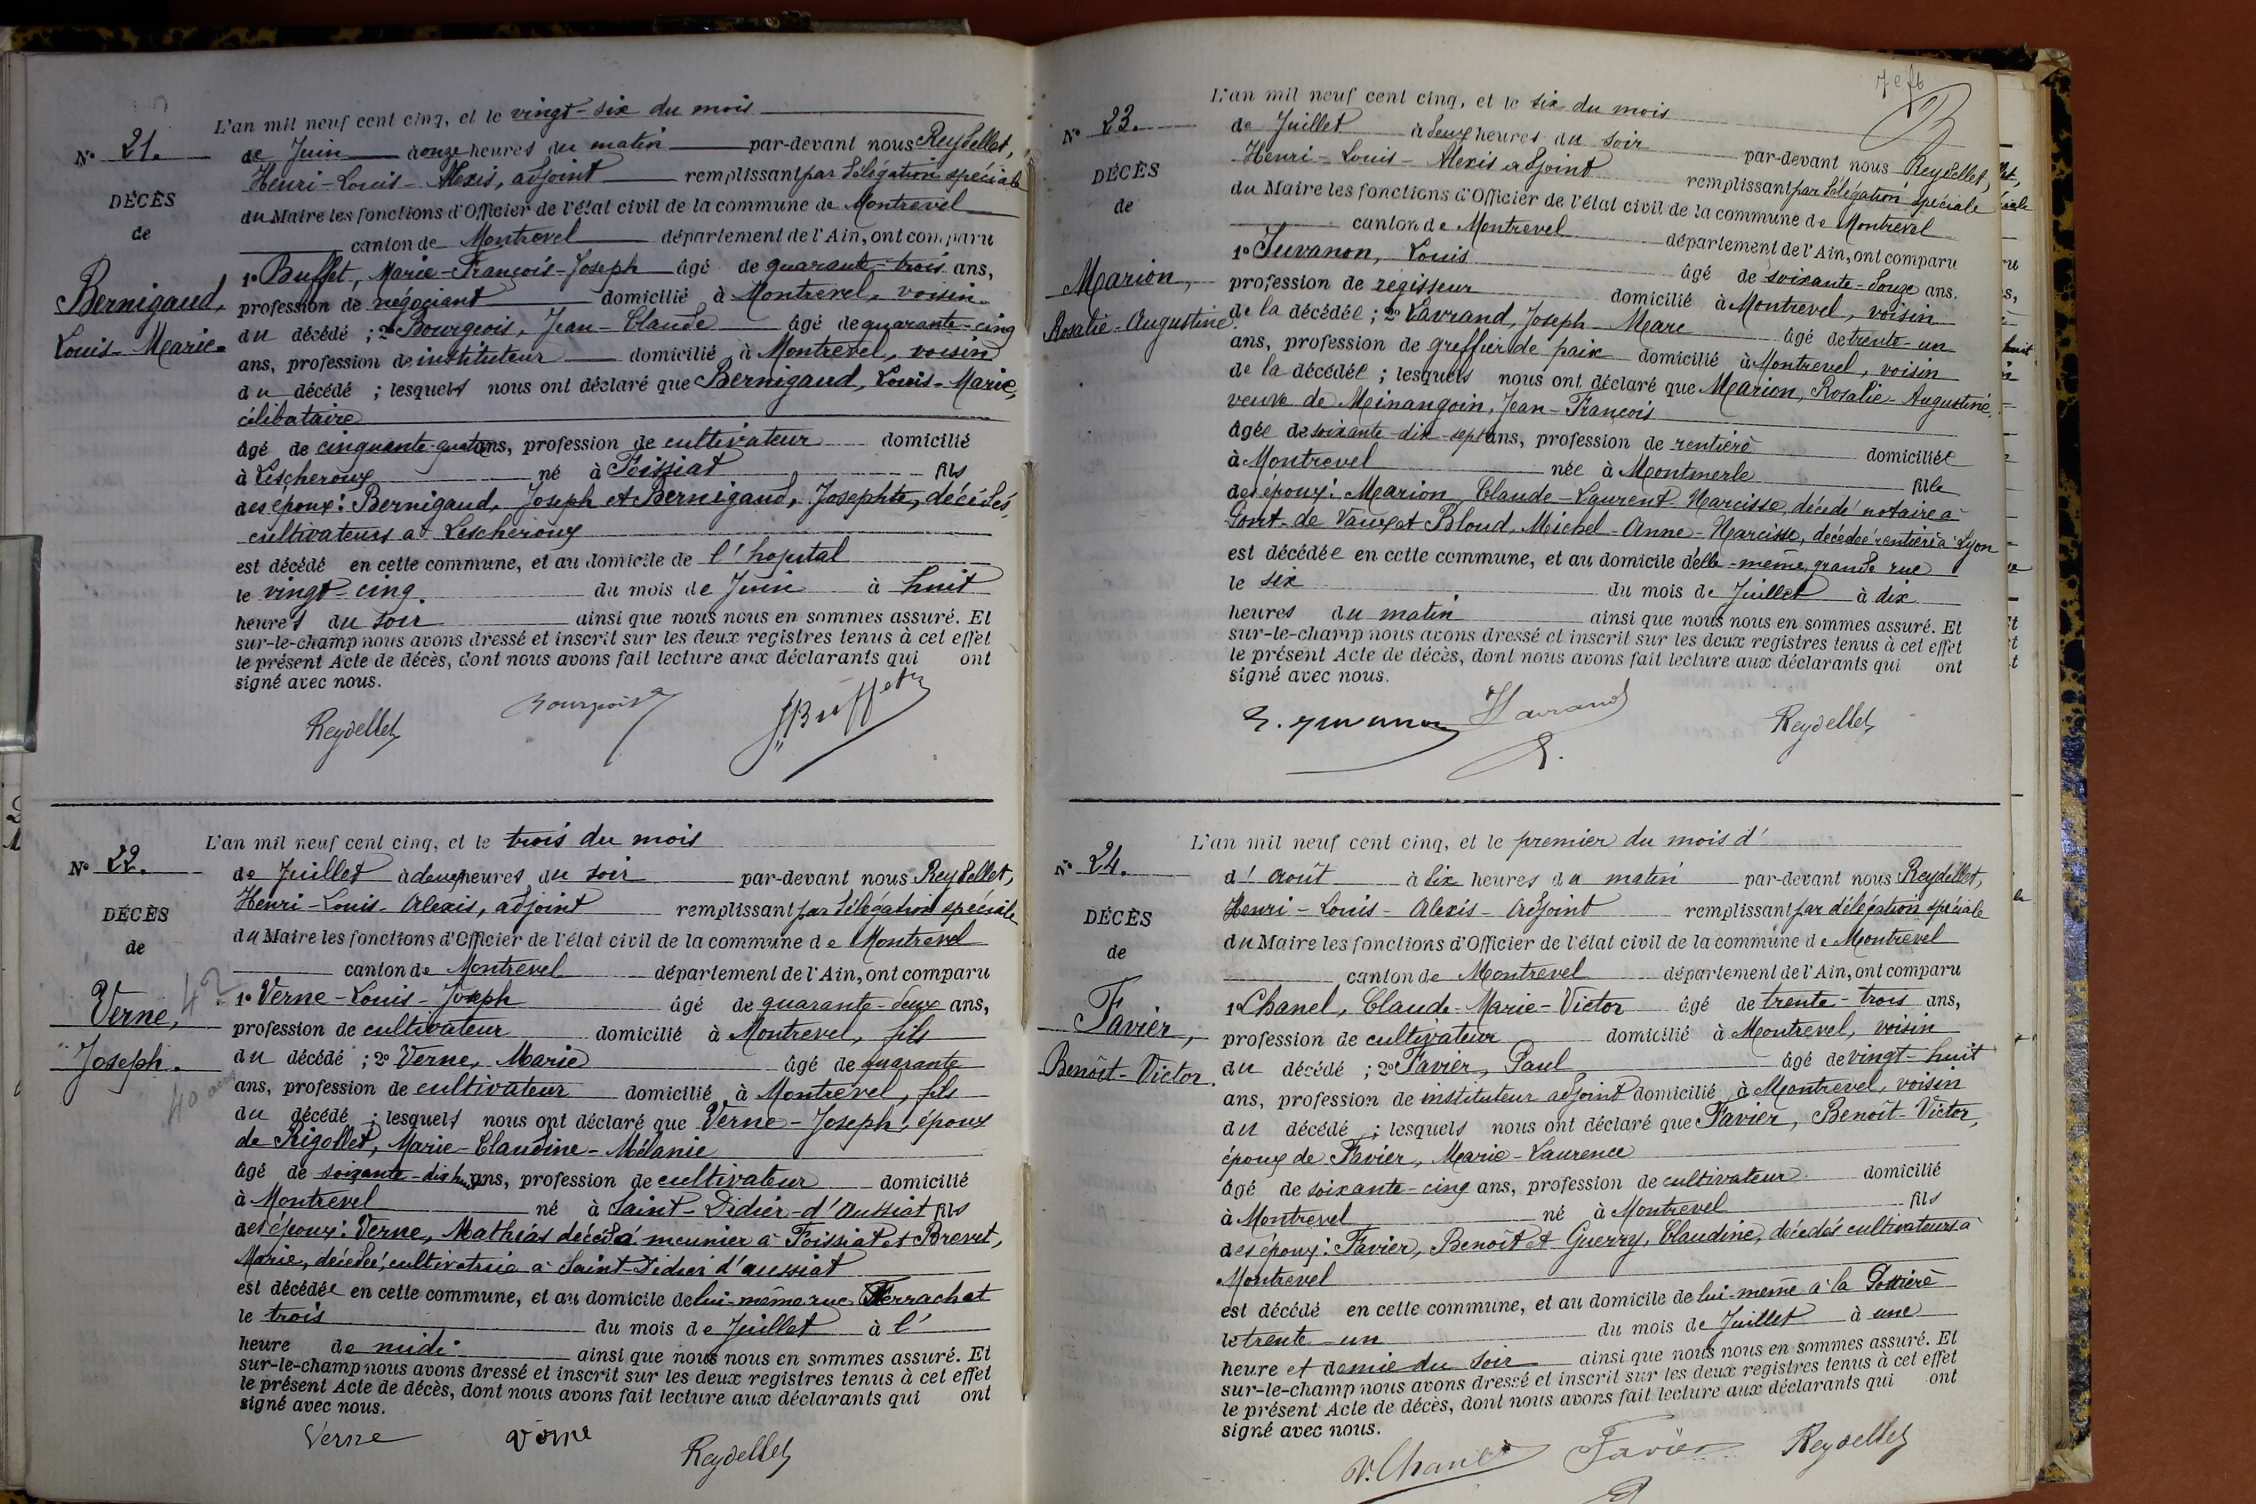 L'an mil neuf cent cinq, et le vingt-six du mois
N° 21. de Juin à onze heures du matin par-devant nous Reydellet,
Henri-Louis-Alexis, adjoint remplissant par délégation spéciale
DÉCÈS du Maire les fonctions d'Officier de l'état civil de la commune de Montrevel
de canton de Montrevel département de l'Ain, ont comparu
1° Buffet, Marie-François-Joseph âgé de quarante-trois ans,
Bernigaud, profession de négociant domicilié à Montrevel, voisin
du décédé ; 2° Bourgeois, Jean-Claude âgé de quarante-cinq
Louis-Marie. ans, profession de instituteur domicilié à Montrevel, voisin
du décédé ; lesquels nous ont déclaré que Bernigaud, Louis-Marie,
célibataire
âgé de cinquante-quatre ans, profession de cultivateur domicilié
à Lescheroux né à Foissiat fils
des époux : Bernigaud, Joseph et Bernigaud, Josephte, décédés,
cultivateurs à Lescheroux
est décédé en cette commune, et au domicile de l'hopital
le vingt-cinq du mois de Juin à huit
heures du soir ainsi que nous nous en sommes assuré. Et
sur-le-champ nous avons dressé et inscrit sur les deux registres tenus à cet effet
le présent Acte de décès, dont nous avons fait lecture aux déclarants qui ont
signé avec nous.
Reydellet Bourgeois JBuffet
L'an mil neuf cent cinq, et le trois du mois
N° 22. de Juillet à deux heures du soir par-devant nous Reydellet,
Henri-Louis-Alexis, adjoint remplissant par délégation spéciale
DÉCÈS du Maire les fonctions d'Officier de l'état civil de la commune de Montrevel
de canton de Montrevel département de l'Ain, ont comparu
1° Verne-Louis-Joseph âgé de quarante-deux ans,
Verne, 42 profession de cultivateur domicilié à Montrevel, fils
du décédé ; 2° Verne, Marie âgé de quarante
Joseph. 40 ans, profession de cultivateur domicilié à Montrevel, fils
du décédé ; lesquels nous ont déclaré que Verne-Joseph, époux
de Rigollet, Marie-Claudine-Mélanie
âgé de soixante-dix huit ans, profession de cultivateur domicilié
à Montrevel né à Saint-Didier-d'Aussiat fils
des époux : Verne, Mathias décédé meunier à Foissiat et Brevet,
Marie, décédée, cultivatrice à Saint-Didier d'aussiat
est décédée en cette commune, et au domicile de lui-même rue Ferrachat
le trois du mois de Juillet à l'
heure de midi ainsi que nous nous en sommes assuré. Et
sur-le-champ nous avons dressé et inscrit sur les deux registres tenus à cet effet
le présent Acte de décès, dont nous avons fait lecture aux déclarants qui ont
signé avec nous.
Verne Verne Reydellet
L'an mil neuf cent cinq, et le six du mois
N° 23. de Juillet à deux heures du soir par-devant nous Reydellet,
Henri-Louis-Alexis adjoint remplissant par délégation spéciale
DÉCÈS du Maire les fonctions d'Officier de l'état civil de la commune de Montrevel
de canton de Montrevel département de l'Ain, ont comparu
1° Juvanon, Louis âgé de soixante-douze ans.
Marion, profession de régisseur domicilié à Montrevel, voisin
Rosalie-Augustine. de la décédée ; 2° Lavrand, Joseph-Marc âgé de trente-un
ans, profession de greffier de paix domicilié à Montrevel, voisin
de la décédée ; lesquels nous ont déclaré que Marion, Rosalie-Augustine,
veuve de Meinangoin, Jean-François
âgée de soixante-dix-sept ans, profession de rentière domiciliée
à Montrevel née à Montmerle fille
des époux : Marion, Claude-Laurent-Narcisse décédé notaire à
Pont-de-Vaux et Bloud, Michel-Anne-Narcisse, décédée rentière à Lyon
est décédée en cette commune, et au domicile d'elle-même, grande rue
le six du mois de Juillet à dix
heures du matin ainsi que nous nous en sommes assuré. Et
sur-le-champ nous avons dressé et inscrit sur les deux registres tenus à cet effet
le présent Acte de décès, dont nous avons fait lecture aux déclarants qui ont
signé avec nous.
L. Juvanon JLavrand Reydellet
L'an mil neuf cent cinq, et le premier du mois d'
N° 24. d'août à dix heures du matin par-devant nous Reydellet,
Henri-Louis-Alexis-Adjoint remplissant par délégation spéciale
DÉCÈS du Maire les fonctions d'Officier de l'état civil de la commune de Montrevel
de canton de Montrevel département de l'Ain, ont comparu
1° Chanel, Claude-Marie-Victor âgé de trente-trois ans,
Favier, profession de cultivateur domicilié à Montrevel, voisin
Benoît-Victor. du décédé ; 2° Favier, Paul âgé de vingt-huit
ans, profession de instituteur adjoint domicilié à Montrevel, voisin
du décédé ; lesquels nous ont déclaré que Favier, Benoît-Victor,
époux de Favier, Marie-Laurence
âgé de soixante-cinq ans, profession de cultivateur domicilié
à Montrevel né à Montrevel fils
des époux : Favier, Benoît et Guerry, Claudine, décédés cultivateurs à
Montrevel
est décédé en cette commune, et au domicile de lui-même à la
le trente-un du mois de Juillet à une
heure et demie du soir ainsi que nous nous en sommes assuré. Et
sur-le-champ nous avons dressé et inscrit sur les deux registres tenus à cet effet
le présent Acte de décès, dont nous avons fait lecture aux déclarants qui ont
signé avec nous.
V. Chanel Favier Reydellet